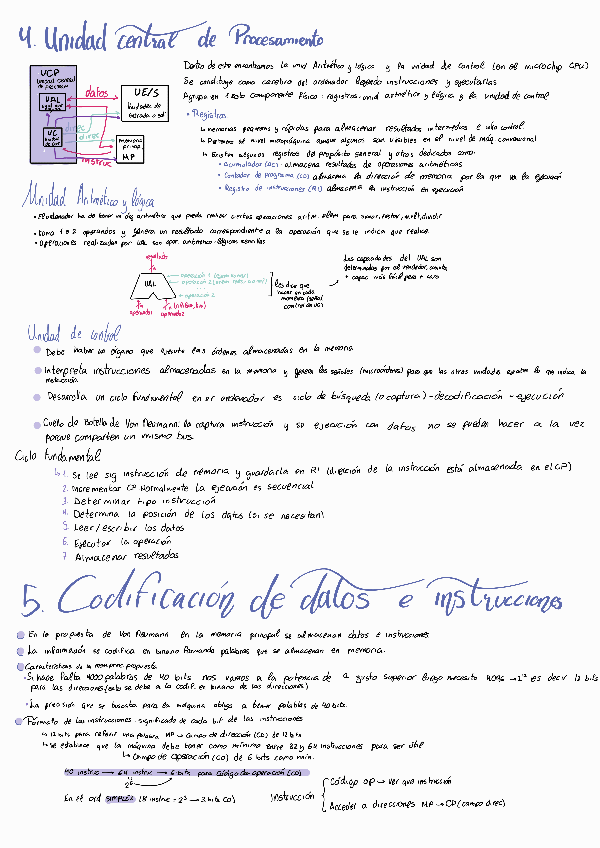 4. Unidad central de Procesamiento
Dentro de ella encontramos la unid Aritmético y lógica y la unidad de control (en el microchip CPU)
Se constituye como cerebro del ordenador llegando instrucciones y ejecutarlas
Agrupa en 1 solo componente físico: registros, unid aritmética y lógica y la unidad de control
UCP
UAL
UC
datos
UE/S
direc
direc
instruc
memoria
princip
MP
• Registros
↳ Memorias pequeñas y rápidas para almacenar resultados intermedios e info control.
↳ Pertenece al nivel micromáquina aunque algunos son visibles en el nivel de máq convencional
↳ Existen algunos registros de propósito general y otros dedicados como:
• Acumulador (AC) almacena resultados de operaciones aritméticas
• Contador de programa (CP) almacena la dirección de memoria por la que va la ejecución
• Registro de instrucciones (RI) almacena la instrucción en ejecución
Unidad Aritmético y lógica
• El ordenador ha de tener un órg aritmético que pueda realizar ciertas operaciones aritm. elem para sumar, restar, mult, dividir
• Toma 1 o 2 operandos y genera un resultado correspondiente a la operación que se le indica que realice.
• Operaciones realizadas por UAL son oper. aritmético-lógicas sencillas
resultado
UAL
operación 1
operación 2
operación 3
operando1
operando2
les dice que
hacer en cada
momento
Las capacidades del UAL son
determinadas por el rendimiento,
+ capac más fácil pero + caro
Unidad de control
Debe haber un órgano que ejecute las órdenes almacenadas en la memoria
Interpreta instrucciones almacenadas en la memoria y genera las señales (microórdenes) para que las otras unidades ejecuten lo que indica la
instrucción.
Desarrolla un ciclo fundamental en el ordenador es ciclo de búsqueda (o captura) - decodificación - ejecución
Cuello de Botella de Von Neumann: la captura instrucción y su ejecución con datos no se pueden hacer a la vez
porque comparten un mismo bus.
Ciclo fundamental
↳ 1. Se lee sig instrucción de memoria y guardarla en RI (dirección de la instrucción está almacenada en el CP)
2. Incrementar CP Normalmente la ejecución es secuencial
3. Determinar tipo instrucción
4. Determina la posición de los datos (si se necesitan)
5. Leer/escribir los datos
6. Ejecutar la operación
7. Almacenar resultados
5. Codificación de datos e instrucciones
En la propuesta de Von Neumann en la memoria principal se almacenan datos e instrucciones
La información se codifica en binario formando palabras que se almacenan en memoria.
Características de la mem princ propuesta
• Si hace falta 4000 palabras de 40 bits nos vamos a la potencia de 2 justo superior luego necesito 4096 → 2¹² es decir 12 bits
para las direcciones (esto se debe a la codif. en binario de las direcciones)
• La precisión que se buscaba para la máquina obliga a tener palabras de 40 bits.
Formato de las instrucciones: significado de cada bit de las instrucciones
↳ 12 bits para referir una palabra MP → campo de dirección (CD) de 12 bits
↳ se establece que la máquina debe tener como mínimo entre 32 y 64 instrucciones para ser útil
↳ Campo de operación (CO) de 6 bits como mín.
40 instruc → 64 instruc → 6 bits para código de operación (CO)
2⁶
En el ord SIMPLEZ (8 instruc - 2³ → 3 bits CO)
Instrucción
Código OP → ver que instrucción
Acceder a direcciones MP → CD (campo direc)